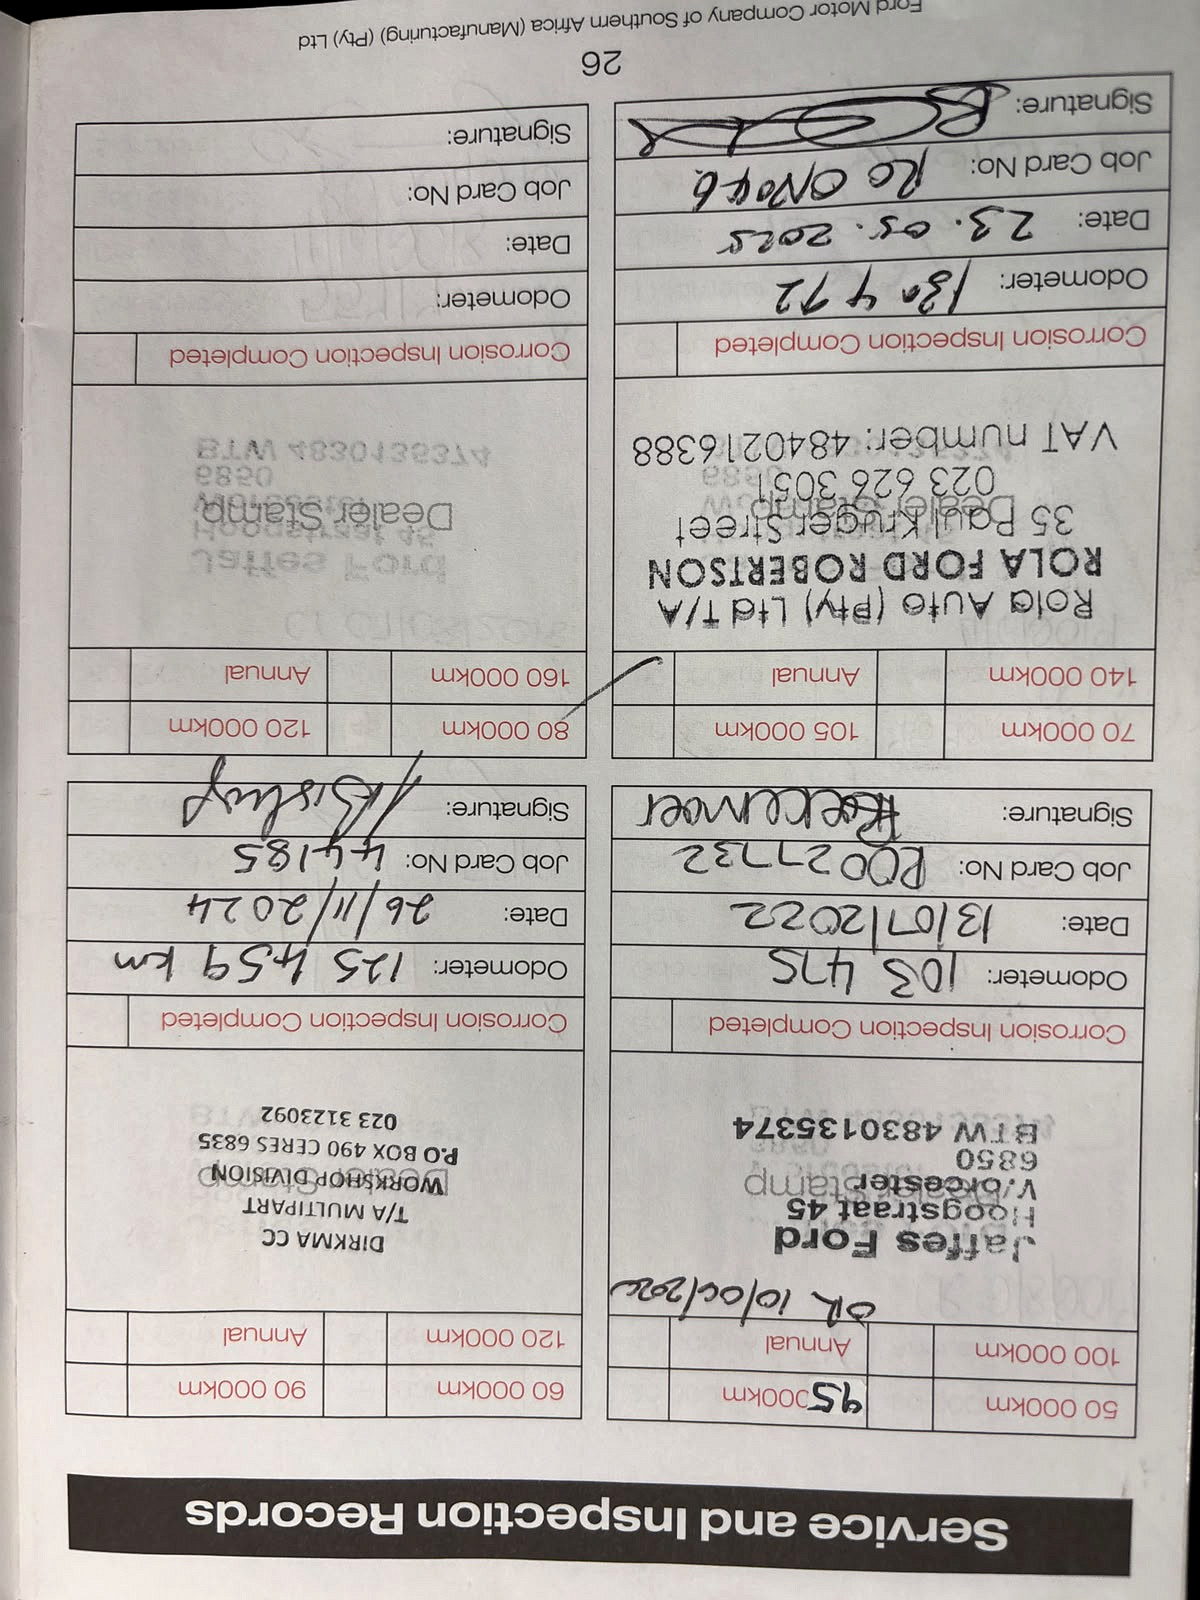 Service and Inspection Records
50 000km
95 000km
100 000km
Annual
OR 10/06/2022
Jaffes Ford
Hoogstraat 45
Worcester
6850
BTW 4830135374
Dealer Stamp
Corrosion Inspection Completed
Odometer: 103 475
Date: 13/07/2022
Job Card No: RO027732
Signature:
60 000km
90 000km
120 000km
Annual
DIRKMA CC
T/A MULTIPART
WORKSHOP DIVISION
P.O BOX 490 CERES 6835
023 3123092
Dealer Stamp
Corrosion Inspection Completed
Odometer: 125 459 km
Date: 26/11/2024
Job Card No: 44185
Signature:
70 000km
105 000km
140 000km
Annual
Rola Auto (Pty) Ltd T/A
ROLA FORD ROBERTSON
35 Paul Kruger Street
023 626 3051
VAT number: 4840216388
Dealer Stamp
Corrosion Inspection Completed
Odometer: 130 472
Date: 23.05.2025
Job Card No:
Signature:
80 000km
120 000km
160 000km
Annual
Jaffes Ford
Hoogstraat 45
Worcester
6850
BTW 4830135374
Dealer Stamp
Corrosion Inspection Completed
Odometer:
Date:
Job Card No:
Signature:
26
Ford Motor Company of Southern Africa (Manufacturing) (Pty) Ltd